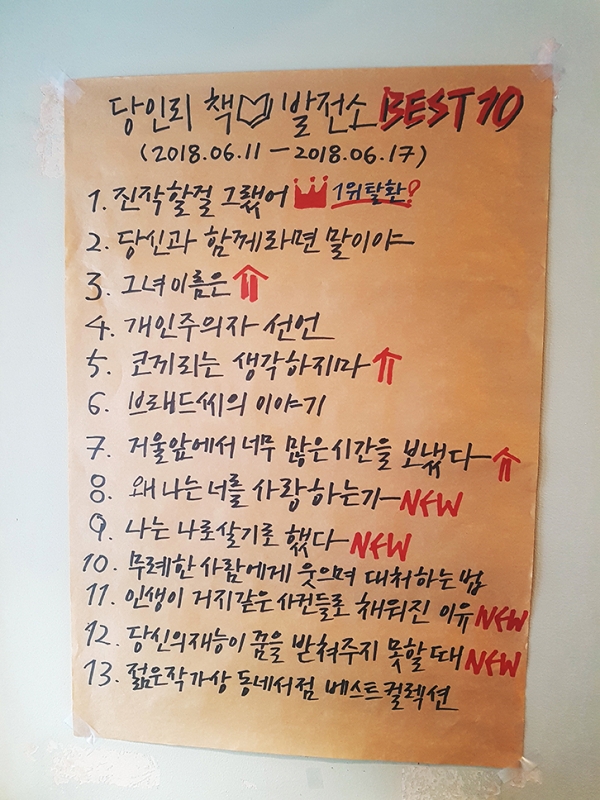 당인리 책 발전소 BEST 10
(2018.06.11 - 2018.06.17)
1. 진작할걸 그랬어 1위탈환?
2. 당신과 함께라면 말이야
3. 그녀이름은
4. 개인주의자 선언
5. 코끼리는 생각하지마
6. 브래드씨의 이야기
7. 거울앞에서 너무 많은 시간을 보냈다
8. 왜 나는 너를 사랑하는가 NEW
9. 나는 나로살기로 했다 NEW
10. 무례한 사람에게 웃으며 대처하는 법
11. 인생이 거지같은 사건들로 채워진 이유 NEW
12. 당신의재능이 꿈을 받쳐주지 못할 때 NEW
13. 젊은작가상 동네서점 베스트컬렉션